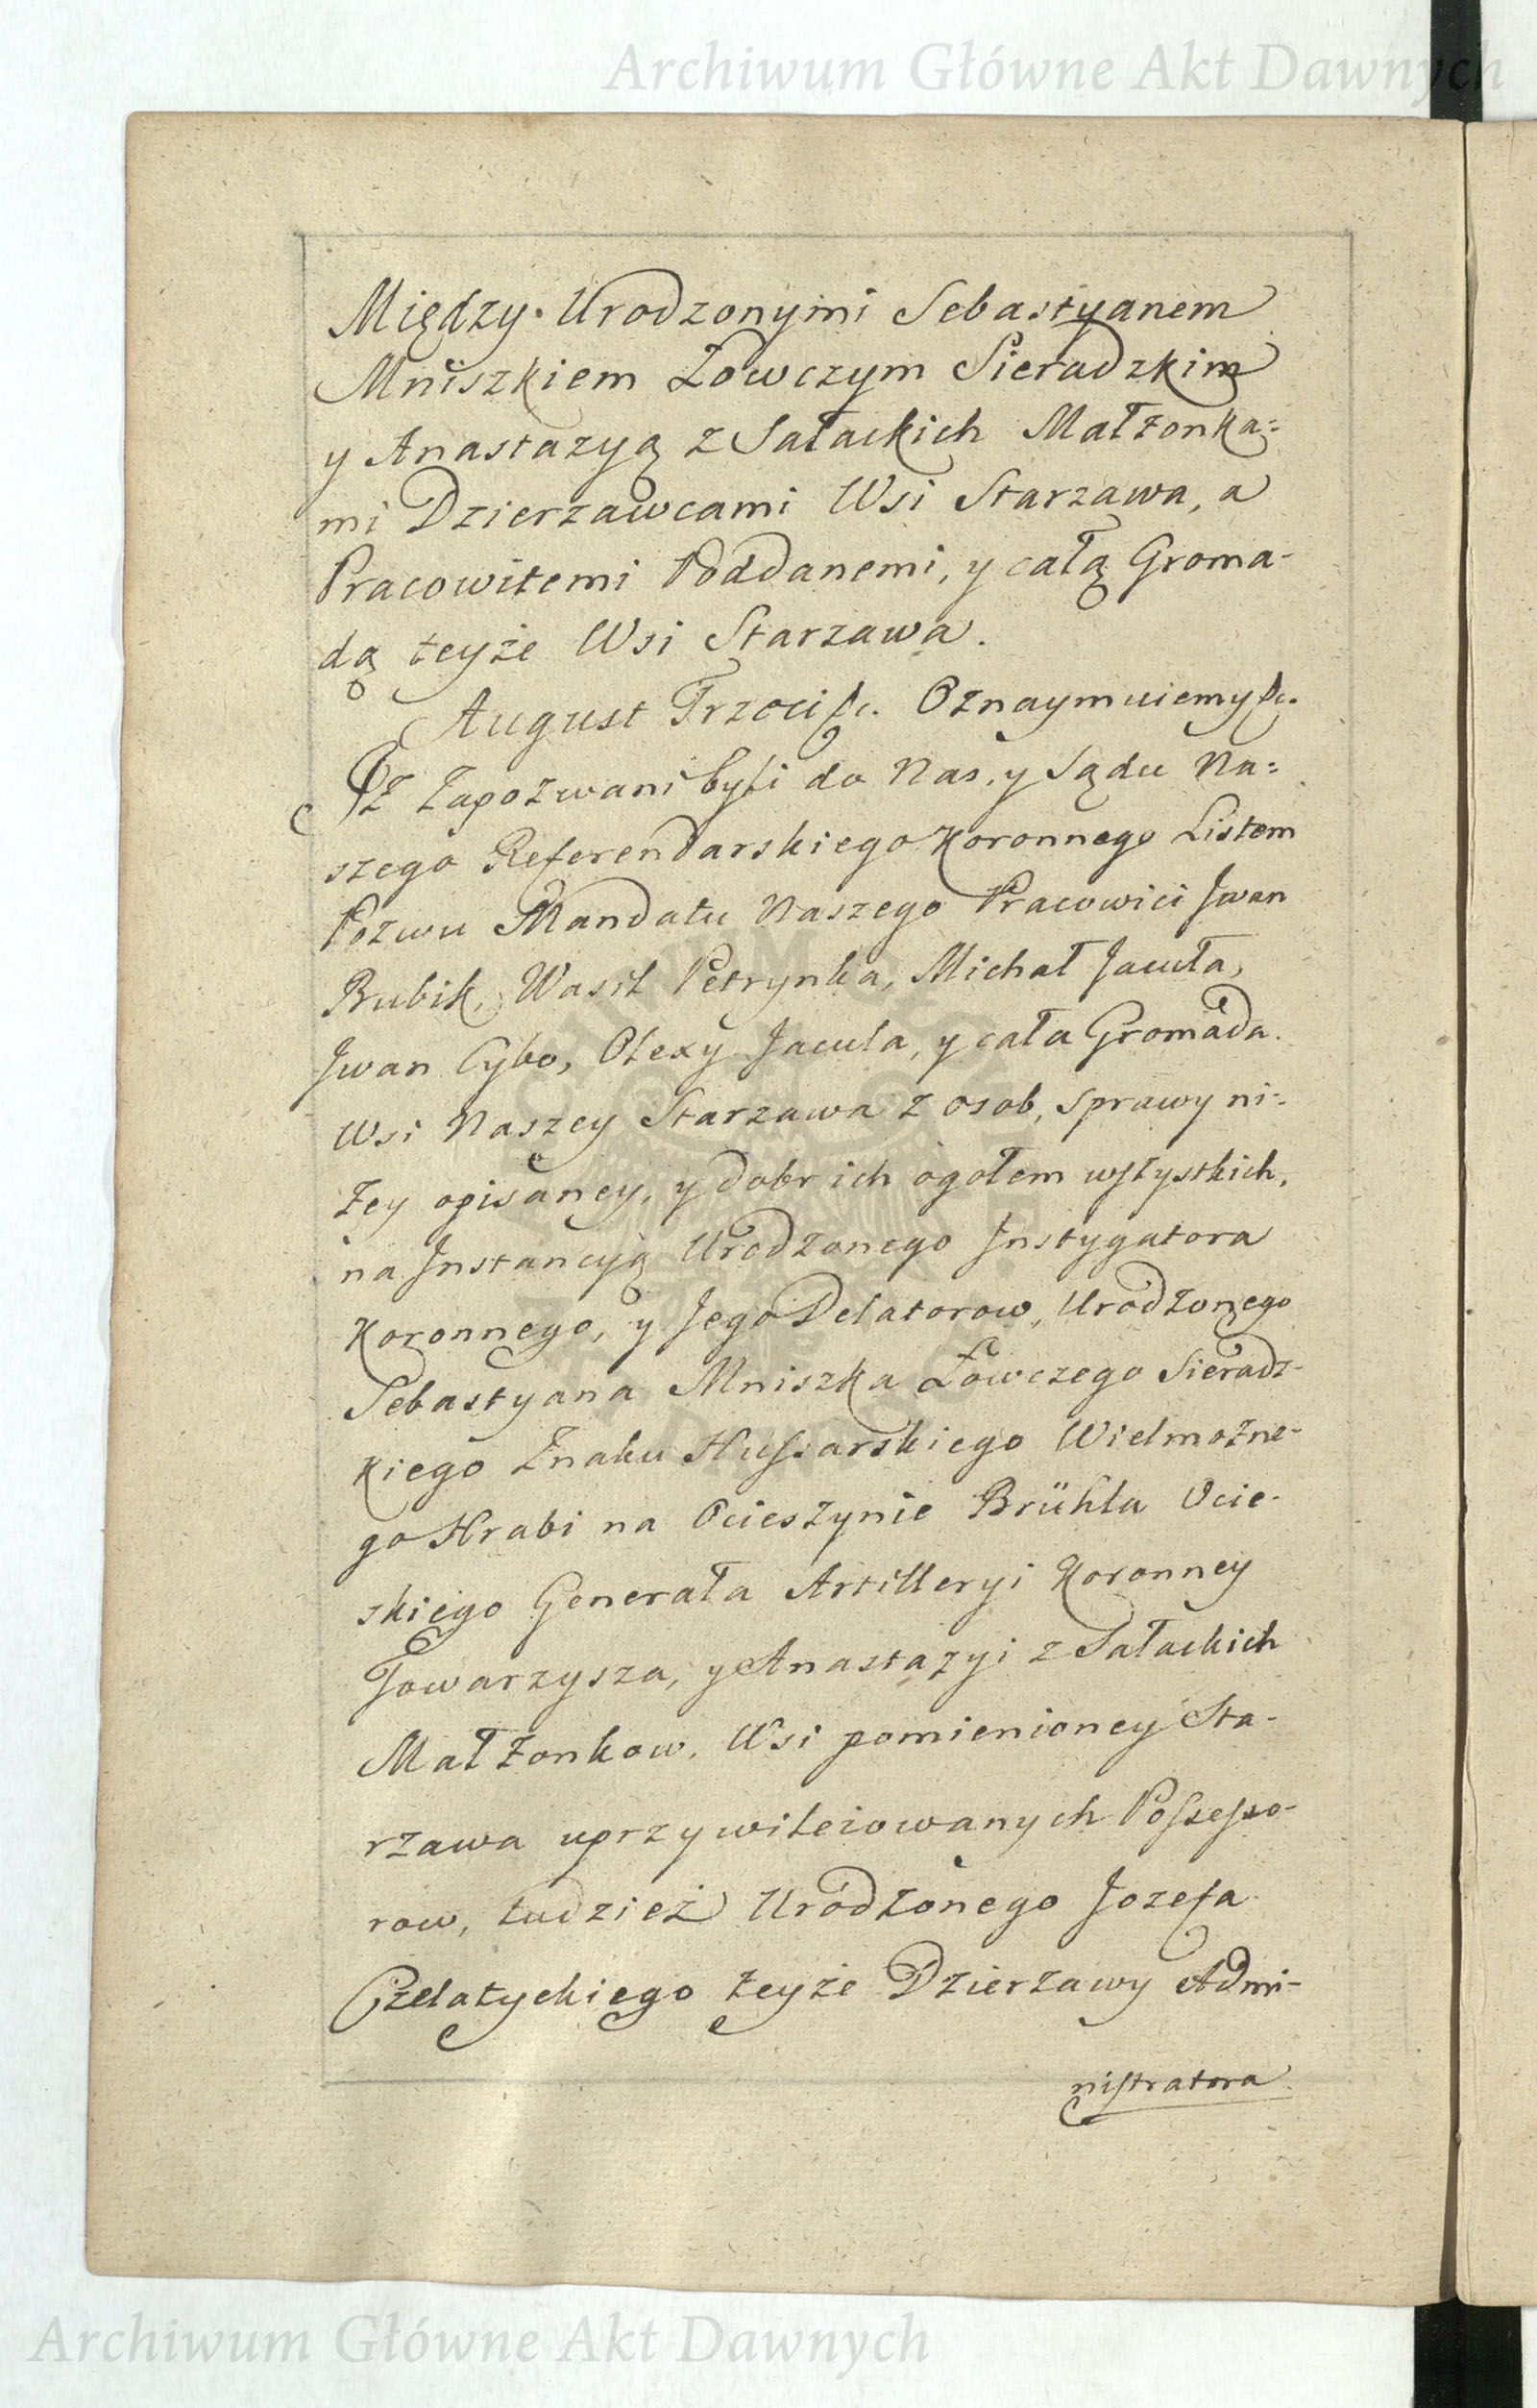 Archiwum Główne Akt Dawnych
Między Urodzonymi Sebastyanem
Mniszkiem Łowczym Sieradzkim
y Anastazyą z Sałackich Małżonka=
mi Dzierzawcami Wsi Starzawa, a
Pracowitemi Poddanemi, y całą Groma-
dą teyże Wsi Starzawa.
August Trzeci &c. Oznaymuiemy &c.
Iż Zapozwani byli do Nas, y Sądu Na=
szego Referendarskiego Koronnego Listem
Pozwu Mandatu Naszego Pracowici Jwan
Bubik, Wasil Petrynka, Michał Jacuła,
Jwan Cybo, Olexy Jacula, y cała Gromada
Wsi Naszey Starzawa z osob, sprawy ni-
zey opisaney, y dobr ich ogołem wszystkich,
na Jnstancyą Urodzonego Jnstygatora
Koronnego, y Jego Delatorow, Urodzonego
Sebastyana Mniszka Łowczego Sieradz-
kiego Znaku Hussarskiego Wielmożne-
go Hrabi na Ocieszynie Brühla Ocie-
skiego Generała Artilleryi Koronney
Towarzysza, y Anastazyi z Sałackich
Małżonkow, Wsi pomienioney Sta-
rzawa uprzywileiowanych Possesso-
row, tudzież Urodzonego Jozefa
Czelatyckiego teyże Dzierzawy Admi-
nistratora
Archiwum Główne Akt Dawnych